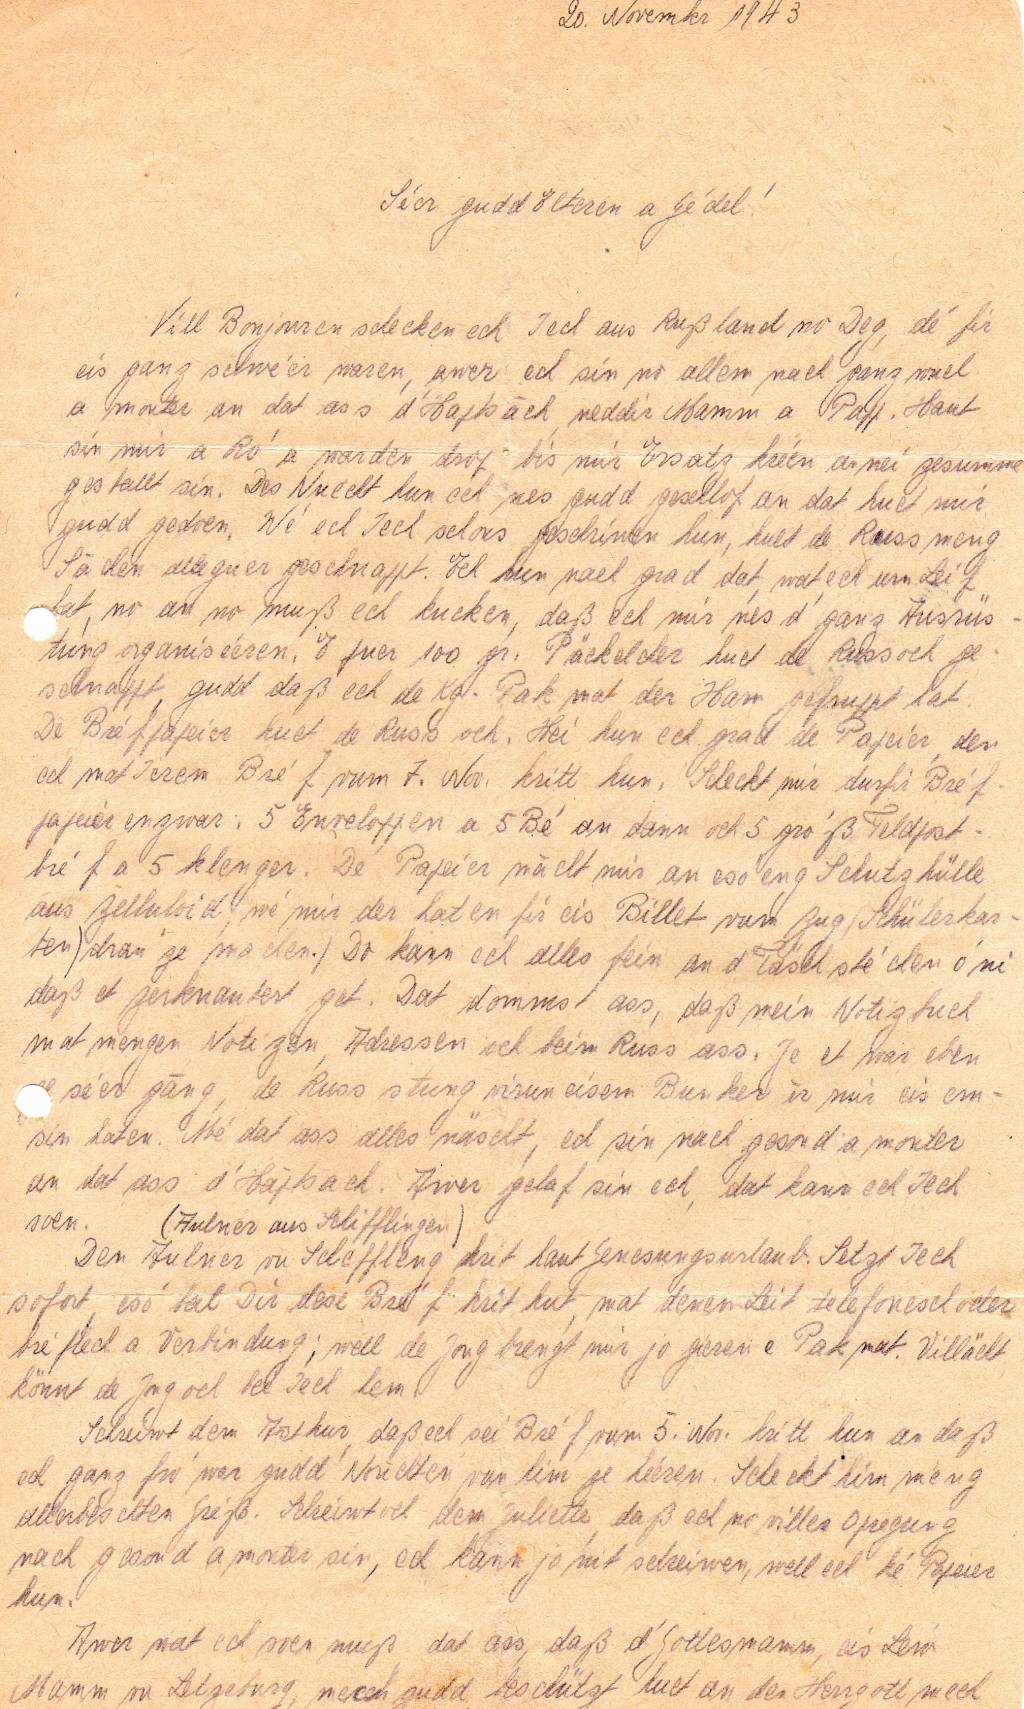 20. November 1943
Séer gudd Elteren a Jédel!
Vill Bonjouren schecken ech Iech aus Rußland no Deg, dé fir
eis ganz schwéer waren, awer ech sin no allem nach ganz wuel
a monter an dat ass d'Haptsäch, neddir Mamm a Papp. Haut
sin mir a Ró a warden drop bis mir Ersatz kréen a nei zesumme
gestallt sin. Des Nuecht hun ech nes gudd geschlof an dat huet mir
gudd gedoen. Wé ech Iech schons geschriwen hun, huet de Russ meng
Sachen alleguer geschnappt. Ech hun nach grad dat, wat ech um Leif
hat, no an no muß ech kucken, daß ech mir nés d'ganz Ausrüs-
tung organiséeren. E puer 100 gr. Päckelcher huet de Russ och ge-
schnappt, gudd daß ech de Kg. Pak mat der Ham gefruppt hat.
De Bréfpapeier huet de Russ och. Hei hun ech grad de Papeier, den
ech mat Ierem Bréf vum 7. Nov. kritt hun. Scheckt mir durfir Bréf-
papeier enzwar: 5 Enveloppen a 5 Bé an dann och 5 gróß Feldpost-
bréf a 5 klenger. Dé Papeier mächt mir an esó eng Schutzhülle
aus Zelluloid, wé mir der haten fir eis Billet vum Zug (Schülerkar-
ten) dran ze maachen.) Do kann ech alles fein an d'Täsch stéchen óni
daß et zerknautert get. Dat dommst ass, daß mein Notizbuch
mat mengen Notizen, Adressen och beim Russ ass. Je et war eben
ze séer gäng, de Russ stung virun eisem Bunker ir mir eis em-
sin haten. Mé dat ass alles näscht, ech sin nach gesond a monter
an dat ass d'Haptsach. Awer gelaf sin ech, dat kann ech Iech
soen. (Aulner aus Schifflingen)
Den Aulner vu Schëffleng krit haut Genesungsurlaub. Setzt Iech
sofort, esó bal Dir dese Bréf krit hut, mat denen Leit telefonesch oder
bréflech a Verbindung; well de Jong brengt mir jo gieren e Pak mat. Villächt
könnt de Jng och bei Iech hem.
Schreiwt dem Arthur, daß ech sei Bréf vum 5. Nov. kritt hun an daß
ech ganz fró war gudd Noriichten vun him ze héeren. Scheckt him meng
allerbéschten Gréß. Schreiwt och dem Juliette, daß ech no viller Opregung
nach gesond a monter sin, ech kann jo nit schreiwen, well ech ké Papeier
hun.
Awer wat ech soen muß, dat ass, daß d'Gottesmamm, eis Léiw
Mamm vu Letzeburg, mech gudd beschützt huet an den Herrgott mech